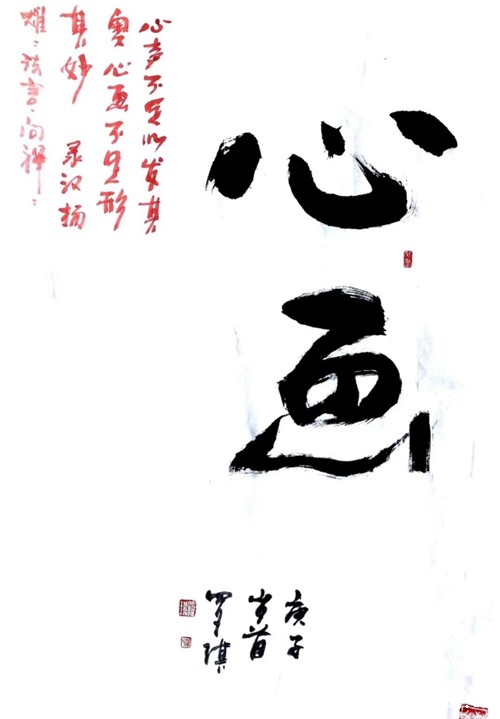 心画
庚子
岁首
罗琪
心声不足以发其
奥心画不足形
其妙 录汉扬
雄:法言·问神: